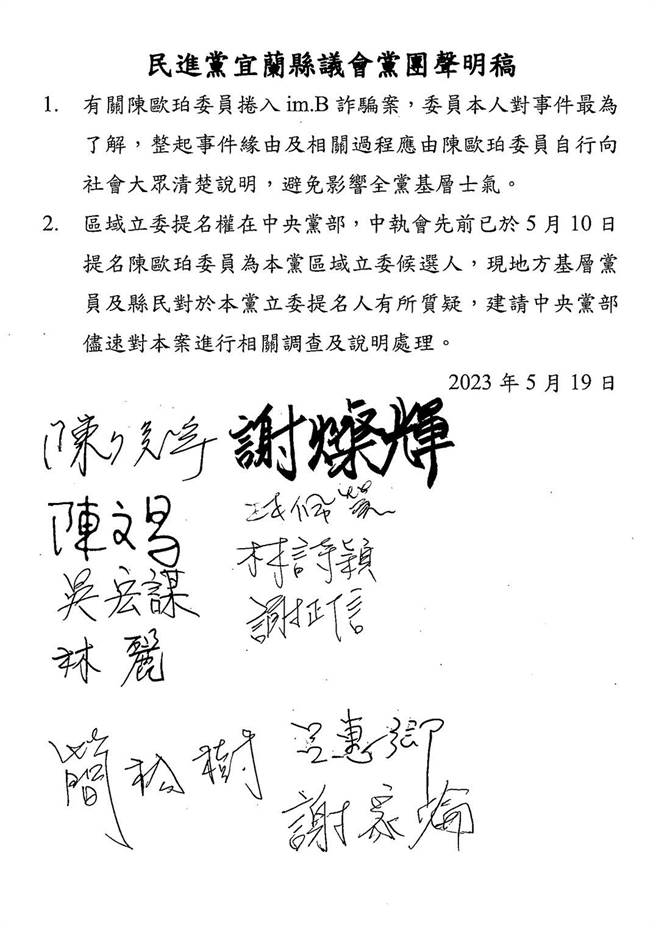 民進黨宜蘭縣議會黨團聲明稿
1. 有關陳歐珀委員捲入 im.B 詐騙案，委員本人對事件最為
了解，整起事件緣由及相關過程應由陳歐珀委員自行向
社會大眾清楚說明，避免影響全黨基層士氣。
2. 區域立委提名權在中央黨部，中執會先前已於 5 月 10 日
提名陳歐珀委員為本黨區域立委候選人，現地方基層黨
員及縣民對於本黨立委提名人有所質疑，建請中央黨部
儘速對本案進行相關調查及說明處理。
2023 年 5 月 19 日
陳 謝燦輝
陳文昌
吳宏謀 林詩穎
林麗 謝正信
簡松樹
謝家